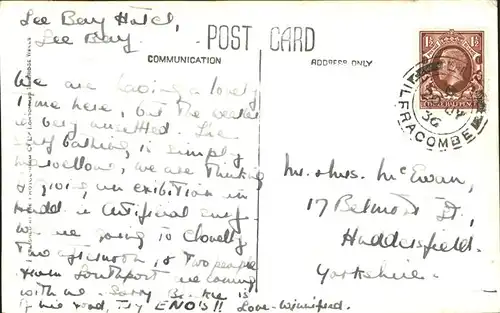 Lee Bay Hotel,
Lee Bay.
POST CARD
COMMUNICATION
ADDRESS ONLY
We are having a lovely
time here, but the weather
is very unsettled. The
bathing is simply
marvellous, we are thinking
of giving an exibition in
Hudd. in Artificial
We are going to Clovelly
This afternoon, & Two people
from Southport are coming
with us. Sorry is
road, Try ENO'S!! Love - Winifred.
Mr. & Mrs. McEwan,
17 Belmont St,
Huddersfield.
Yorkshire.
1½ 1½
ILFRACOMBE
36